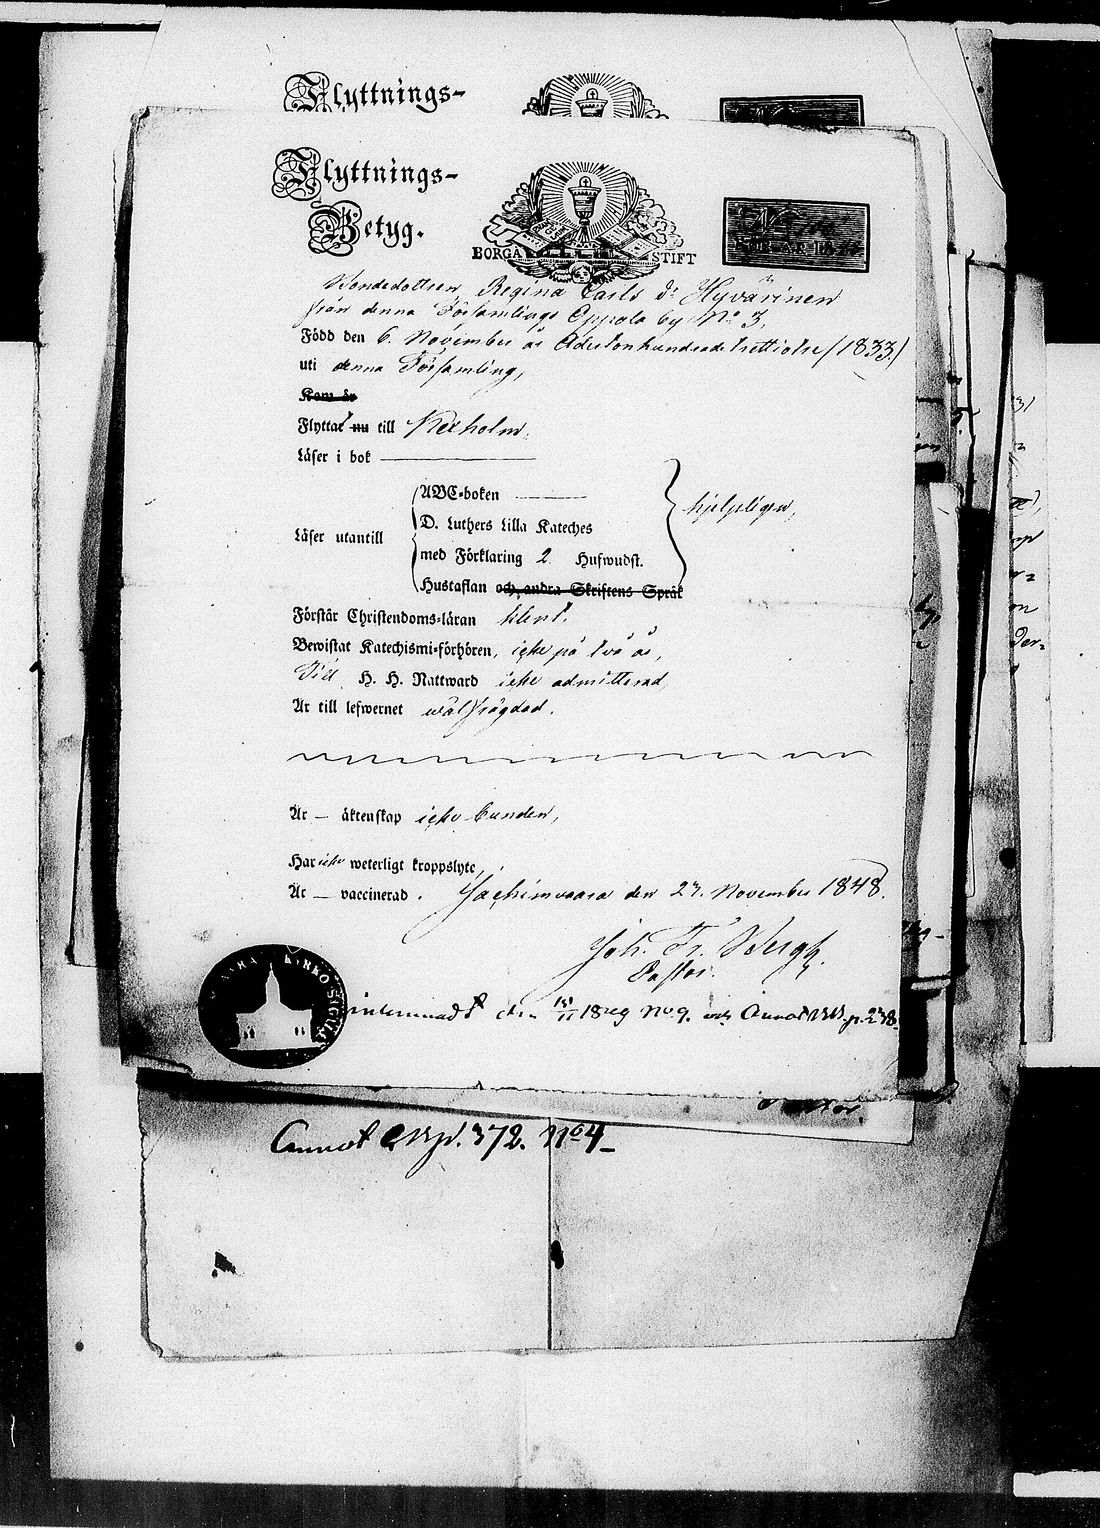 Flyttnings-
Flyttnings-
Betyg.
BORGÅ STIFT
Bondedottren Regina Carls dr Hyvärinen
från denna Församlings Oppola by No 3,
Född den 6 November år Adertonhundrade trettiotre (1833)
uti denna Församling,
Kom år
Flyttar nu till Kexholm,
Läser i bok
ABC-boken
D. Luthers Lilla Kateches
Läser utantill
med Förklaring 2 Hufwudst.
Hustaflan och andra Skriftens Språk
hjelpligen,
Förstår Christendoms-läran klent,
Bewistat Katechismi-förhören, icke på två år,
Till H. H. Nattward icke admitterad
Är till lefwernet wälfrägdad.
Är – äktenskap icke bunden,
Har icke weterligt kroppslyte,
Är – vaccinerad. Jachimvaara den 27. November 1848.
Joh. Fr. Bergh.
Pastor.
KYRKO SIGILL
den 18 No 9. och Annot p. 238.
Annot p. 372. No 4